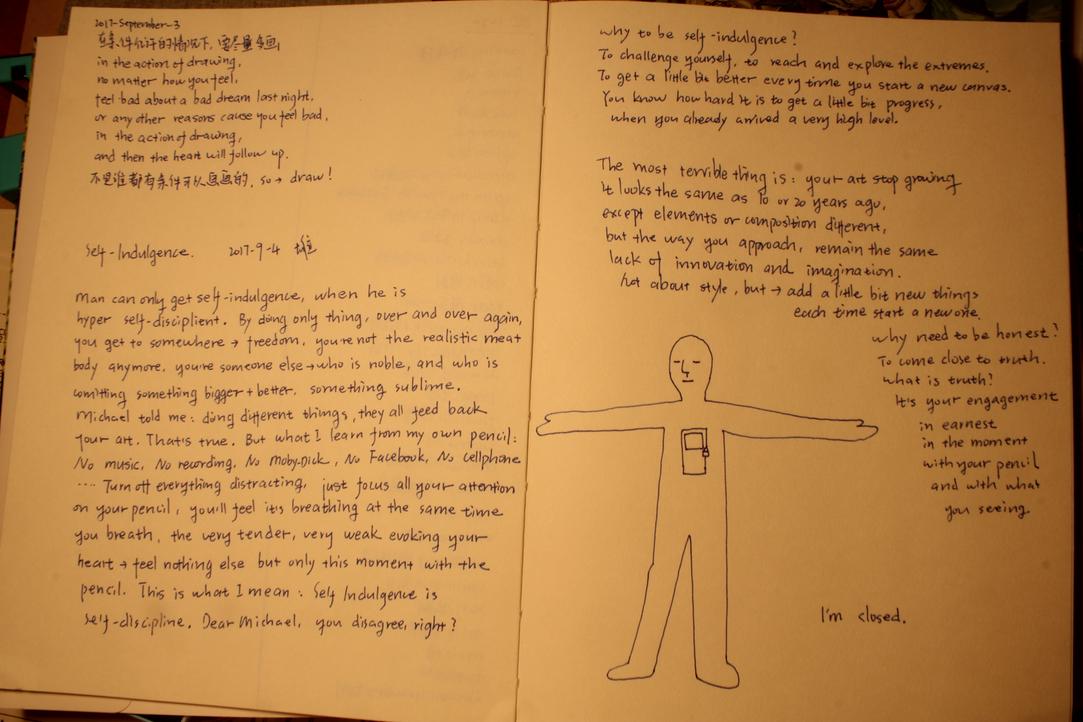 2017-September-3
在条件允许的情况下,要尽量多画
in the action of drawing,
no matter how you feel,
feel bad about a bad dream last night,
or any other reasons cause you feel bad,
in the action of drawing,
and then the heart will follow up.
不是谁都有条件可以画画的, so → draw!
Self-Indulgence. 2017-9-4 雄
Man can only get self-indulgence, when he is
hyper self-disciplient. By doing only thing, over and over again,
you get to somewhere → freedom, you're not the realistic meat
body anymore, you're someone else → who is noble, and who is
comitting something bigger + better, something sublime.
Michael told me: doing different things, they all feed back
your art. That's true. But what I learn from my own pencil:
No music, No recording, No Moby-Dick, No Facebook, No cellphone
.... Turn off everything distracting, just focus all your attention
on your pencil, you'll feel it's breathing at the same time
you breath, the very tender, very weak evoking your
heart → feel nothing else but only this moment with the
pencil. This is what I mean: Self Indulgence is
self-discipline. Dear Michael, you disagree, right?
why to be self-indulgence?
To challenge yourself, to reach and explore the extremes.
To get a little bit better every time you start a new canvas.
You know how hard it is to get a little bit progress,
when you already arrived a very high level.
The most terrible thing is: your art stop growing
it looks the same as 10 or 20 years ago,
except elements or composition different,
but the way you approach, remain the same
lack of innovation and imagination.
not about style, but → add a little bit new things
each time start a new one.
why need to be honest?
To come close to truth.
what is truth?
It's your engagement
in earnest
in the moment
with your pencil
and with what
you seeing.
I'm closed.